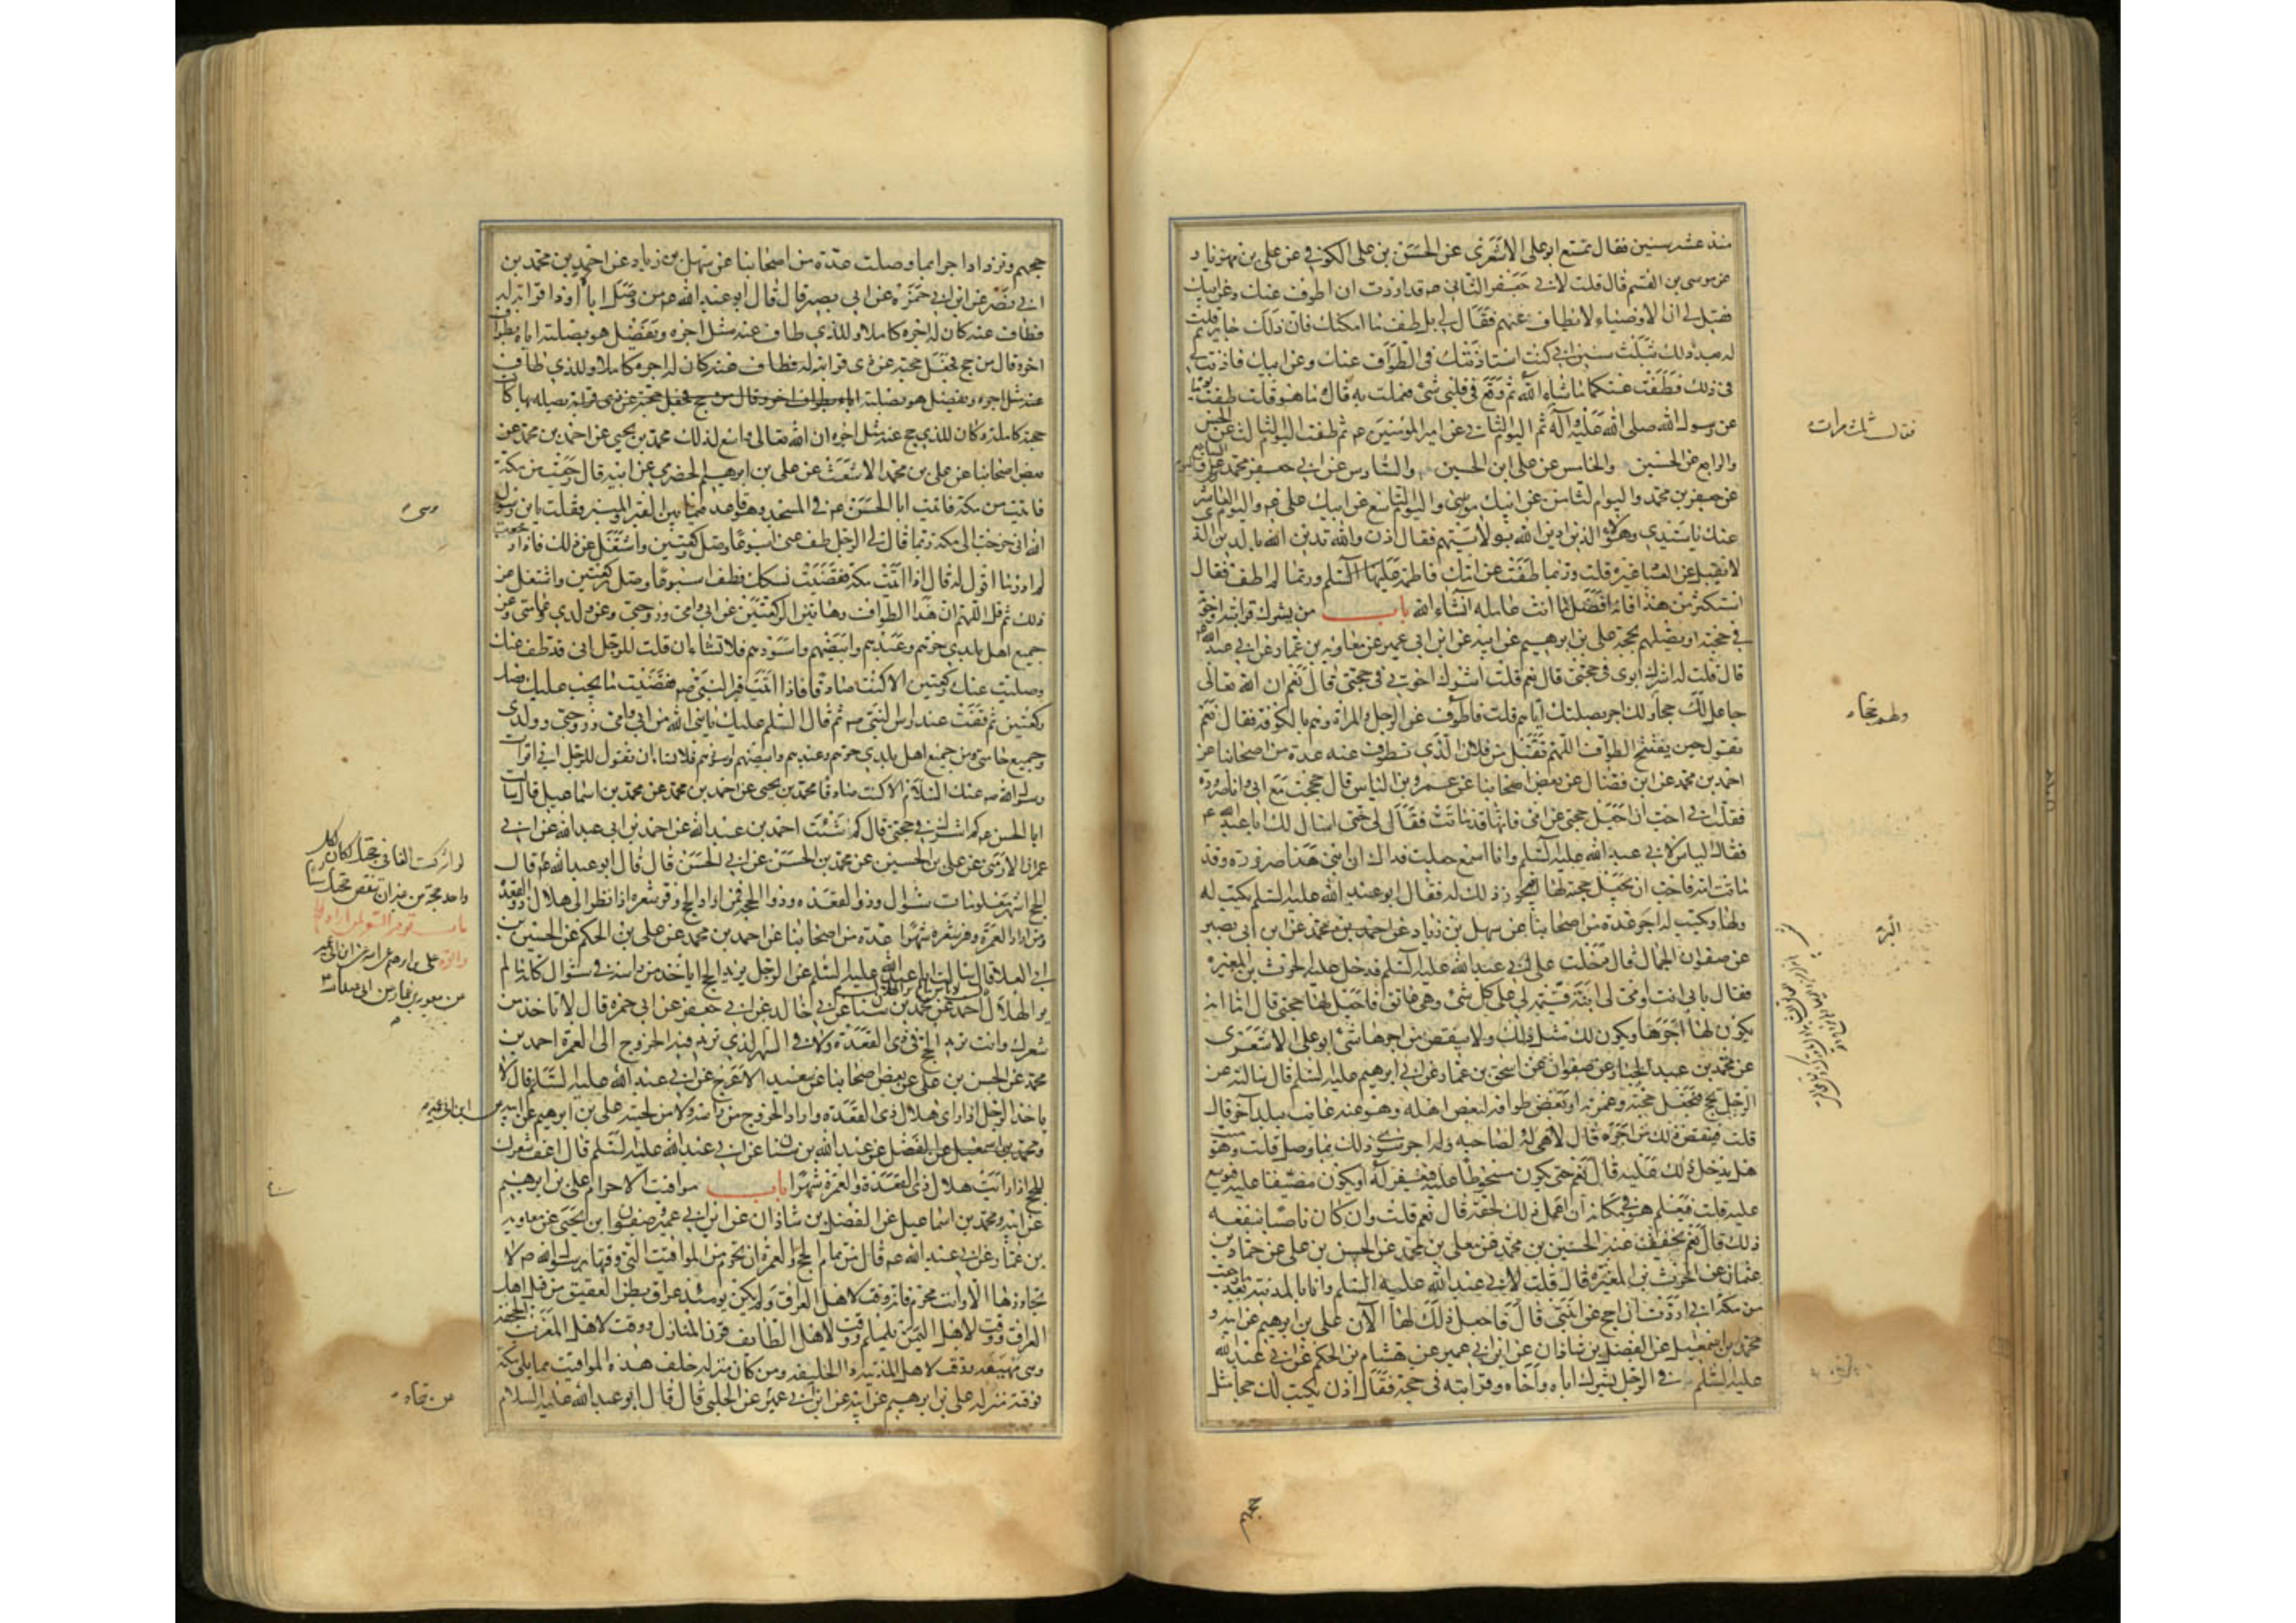 منذ عشر سنين فقال تمتع ابو علي الاشعري عن الحسن بن علي الكوفي عن علي بن مهزيار
عن موسى بن القسم قال قلت لابي جعفر الثاني عم قد اردت ان اطوف عنك وعن ابيك
فقيل لي ان الاوصياء لا يطاف عنهم فقال لي بل طف ما امكنك فان ذلك جايز ثم قلت
له بعد ذلك بثلث سنين اني كنت استاذنتك في الطواف عنك وعن ابيك فاذنت لي
في ذلك فطفت عنكما ما شاء الله ثم وقع في قلبي شئ فعملت به قال ما هو قلت طفت يوما
عن رسول الله صلى الله عليه وآله ثم اليوم الثاني عن امير المؤمنين عم ثم طفت اليوم الثالث عن الحسن
والرابع عن الحسين والخامس عن علي ابن الحسين والسادس عن ابي جعفر محمد بن علي واليوم السابع
عن جعفر بن محمد واليوم الثامن عن ابيك موسى واليوم التاسع عن ابيك علي عم واليوم العاشر
عنك يا سيدي وهؤلاء الذين ادين الله بولايتهم فقال اذن والله تدين الله بالدين الذي
لا يقبل من العباد غيره قلت وربما طفت عن امك فاطمة عليها السلم وربما لم اطف فقال
استكثر من هذا فانه افضل ما انت عامله انشاء الله باب من يشرك قرابته واخوته
في حجته او يصلهم بحجة علي بن ابرهيم عن ابيه عن ابن ابي عمير عن معاوية بن عمار عن ابي عبد الله عم
قال قلت له اشرك ابوي في حجتي قال نعم قلت اشرك اخوتي في حجتي قال نعم ان الله تعالى
جاعل لك حجا ولك اجر بصلتك اياهم قلت فاطوف عن الرجل والمراة وهم بالكوفة فقال نعم
تقول حين يفتتح الطواف اللهم تقبل من فلان الذي تطوف عنه عدة من اصحابنا عن
احمد بن محمد عن ابن فضال عن بعض اصحابنا عن عمرو بن الياس قال حججت مع ابي وانا صرورة
فقلت اني احب ان اجعل حجتي عن امي فانها قد ماتت فقال لي حتى اسال لك ابا عبد الله عم
فقال الياس لابي عبد الله عليه السلم وانا اسمع جعلت فداك ان ابني هذا صرورة وقد
ماتت امه فاحب ان يجعل حجته لها فيجوز ذلك له فقال ابو عبد الله عليه السلم يكتب له
ولها ويكتب له اجر عدة من اصحابنا عن سهل بن زياد عن احمد بن محمد عن ابن ابي نصر
عن صفوان الجمال قال دخلت على ابي عبد الله عليه السلم فدخل عليه الحرث بن المغيرة
فقال بابي انت وامي لي ابنة قيمة لي على كل شئ وهي عاتق فاجعل لها حجتي قال اما انه
يكون لها اجرها ويكون لك مثل ذلك ولا ينقص من اجرها شئ ابو علي الاشعري
عن محمد بن عبد الجبار عن صفوان عن اسحق بن عمار عن ابي ابرهيم عليه السلم قال سالته عن
الرجل يحج فيجعل حجته وعمرته او بعض طوافه لبعض اهله وهو عنه غايب ببلد آخر قال
قلت فينقص ذلك من اجره قال لا هي له ولصاحبه وله اجر سوى ذلك بما وصل قلت وهو ميت
هل يدخل ذلك عليه قال نعم حتى يكون مسخوطا عليه فيغفر له او يكون مضيقا عليه فيوسع
عليه قلت فيعلم هو في مكانه ان عمل ذلك لحقه قال نعم قلت وان كان ناصبا ينفعه
ذلك قال نعم يخفف عنه الحسين بن محمد عن معلى بن محمد عن الحسن بن علي عن حماد بن
عثمان عن الحرث بن المغيرة قال قلت لابي عبد الله عليه السلم وانا بالمدينة بعد ما رجعت
من مكة اني اردت ان احج عن ابنتي قال فاجعل ذلك لها الآن علي بن ابرهيم عن ابيه و
محمد بن اسمعيل عن الفضل بن شاذان عن ابن ابي عمير عن هشام بن الحكم عن ابي عبد الله
عليه السلم في الرجل يشرك اباه واخاه وقرابته في حجته فقال اذن يكتب لك حجا مثل
فقال ثلث مرات
حجهم
حجهم وتزداد اجرا بما وصلت عدة من اصحابنا عن سهل بن زياد عن احمد بن محمد بن
ابي نصر عن ابن ابي حمزة عن ابي بصير قال قال ابو عبد الله عم من وصل ابا او ذا قرابة له
فطاف عنه كان له اجره كاملا وللذي طاف عنه مثل اجره ويفضل هو بصلته اياه بطواف
آخر وقال من حج فجعل حجته عن ذي قرابته له فطاف عنه كان له اجره كاملا وللذي طاف
عنه مثل اجره ويفضل هو بصلته اياه بطواف آخر وقال من حج فجعل حجته عن ذي قرابة يصله بها كانت
حجته كاملة وكان للذي حج عنه مثل اجره ان الله تعالى واسع لذلك محمد بن يحيى عن احمد بن محمد عن
بعض اصحابنا عن علي بن محمد الاشعث عن علي بن ابرهيم الحضرمي عن ابيه قال رجعت من مكة
فاتيت من مكة فاتيت ابا الحسن عم في المسجد وهو قاعد فيما بين القبر والمنبر فقلت يابن رسول
الله اني خرجت الى مكة ربما قال لي الرجل طف عني اسبوعا وصل ركعتين واشتغل عن ذلك فاذا رجعت
لم ادر ما اقول له قال اذا اتيت مكة فقضيت نسكك فطف اسبوعا وصل ركعتين واشتغل عن
ذلك ثم قل اللهم ان هذا الطواف وهاتين الركعتين عن ابي وامي وزوجتي وعن ولدي وعن خاصتي وعن
جميع اهل بلدي حرهم وعبدهم وابيضهم واسودهم فلا تشاء ان قلت للرجل اني قد طفت عنك
وصليت عنك ركعتين الا كنت صادقا فاذا اتيت قبر النبي ص فقضيت ما يجب عليك فصل
ركعتين ثم تقف عند راس النبي ص ثم قال السلم عليك يا نبي الله من ابي وامي وزوجتي وولدي
وجميع خاصتي من جميع اهل بلدي حرهم وعبدهم وابيضهم واسودهم فلا تشاء ان تقول للرجل اني اقرات
رسول الله ص عنك السلام الا كنت صادقا محمد بن يحيى عن احمد بن محمد عن محمد بن اسماعيل قال سالت
ابا الحسن عم كم اشرك في حجتي قال كم شئت احمد بن عبد الله عن احمد بن ابي عبد الله عن ابي
عمران الارمني عن علي بن الحسين عن محمد بن الحسن عن ابي الحسن قال قال ابو عبد الله عم قال
الحج اشهر معلومات شوال وذو القعدة وذو الحجة فمن اراد الحج وفر شعره اذا نظر الى هلال ذو القعدة
ومن اراد العمرة وفر شعره شهرا عدة من اصحابنا عن احمد بن محمد عن علي بن الحكم عن الحسين بن
ابي العلا قال سالت ابا عبد الله عليه السلم عن الرجل يريد الحج ايأخذ من راسه في شوال كله ما لم
ير الهلال احمد عن محمد بن سنان عن ابي خالد عن ابي جعفر عن ابي حمزة قال لا تاخذ من
شعرك وانت تريد الحج في ذي القعدة ولا في الشهر الذي تريد فيه الخروج الى العمرة احمد بن
محمد عن الحسن بن علي عن بعض اصحابنا عن سعيد الاعرج عن ابي عبد الله عليه السلم قال لا
ياخذ الرجل اذا راى هلال ذي القعدة واراد الخروج من راسه ولا من لحيته علي بن ابرهيم عن ابيه
ومحمد بن اسمعيل عن الفضل عن عبد الله بن سنان عن ابي عبد الله عليه السلم قال اعف شعرك
للحج اذا رايت هلال ذي القعدة وللعمرة شهرا باب مواقيت الاحرام علي بن ابرهيم
عن ابيه ومحمد بن اسماعيل عن الفضل بن شاذان عن ابن ابي عمير وصفوان ابن يحيى عن معاوية
بن عمار عن ابي عبد الله عم قال من تمام الحج والعمرة ان تحرم من المواقيت التي وقتها رسول الله ص لا
تجاوزها الا وانت محرم فانه وقت لاهل العراق ولم يكن يومئذ عراق بطن العقيق من قبل اهل
العراق ووقت لاهل اليمن يلملم ووقت لاهل الطائف قرن المنازل ووقت لاهل المغرب الجحفة
وهي مهيعة ووقت لاهل المدينة ذا الحليفة ومن كان منزله خلف هذه المواقيت مما يلي مكة
فوقته منزله علي بن ابرهيم عن ابيه عن ابن ابي عمير عن الحلبي قال قال ابو عبد الله عليه السلام
لو اشركت الفا في حجتك لكان لكل
واحد حجة من غير ان تنقص حجتك شيئا
باب توفير الشعر لمن اراد الحج
والعمرة علي بن ابرهيم عن ابيه عن ابن ابي عمير
عن معوية بن عمار عن ابي عبد الله
عن ابن ابي عمير